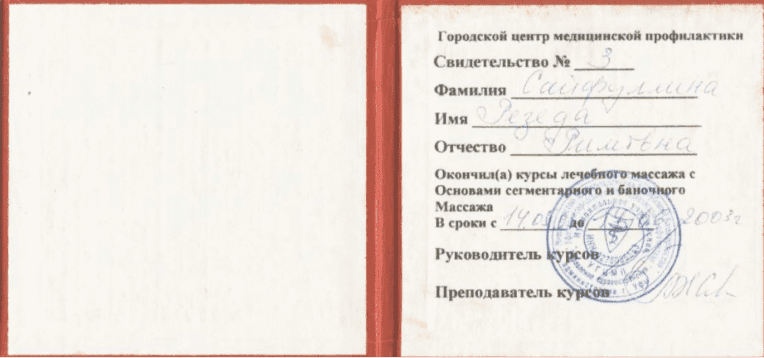 Городской центр медицинской профилактики
Свидетельство № 3
Фамилия Сайфуллина
Имя Резеда
Отчество
Окончил(а) курсы лечебного массажа с
Основами сегментарного и баночного
Массажа
В сроки с 14.0 до 2003г
Руководитель курсов
Преподаватель курсов